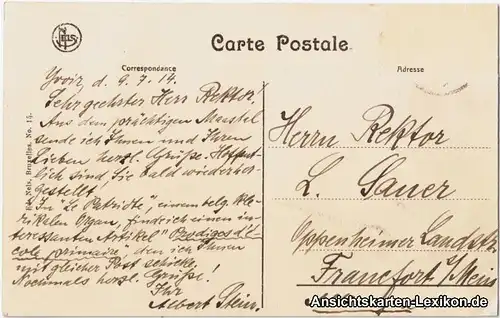 NELS
Carte Postale.
Correspondance
Adresse
Yvoir, d. 9.7.14.
Sehr geehrter Herr Rektor!
Aus dem prächtigen Maastal
sende ich Ihnen und Ihren
Lieben herzl. Grüße. Hoffent-
lich sind Sie bald wiederher-
gestellt.
In "Le Patriote", einem belg. kle-
rikalen Organ, finde ich einen in-
teressanten Artikel "Prodiges d'é-
cole primaire", den ich Ihnen
mit gleicher Post schicke.
Nochmals herzl. Grüße!
Ihr
Albert Stein.
Herrn Rektor
L. Sauer
Oppenheimer Landstr.
Francfort s/Mein
Ed. Nels, Bruxelles. No. 15.
Ansichtskarten-Lexikon.de